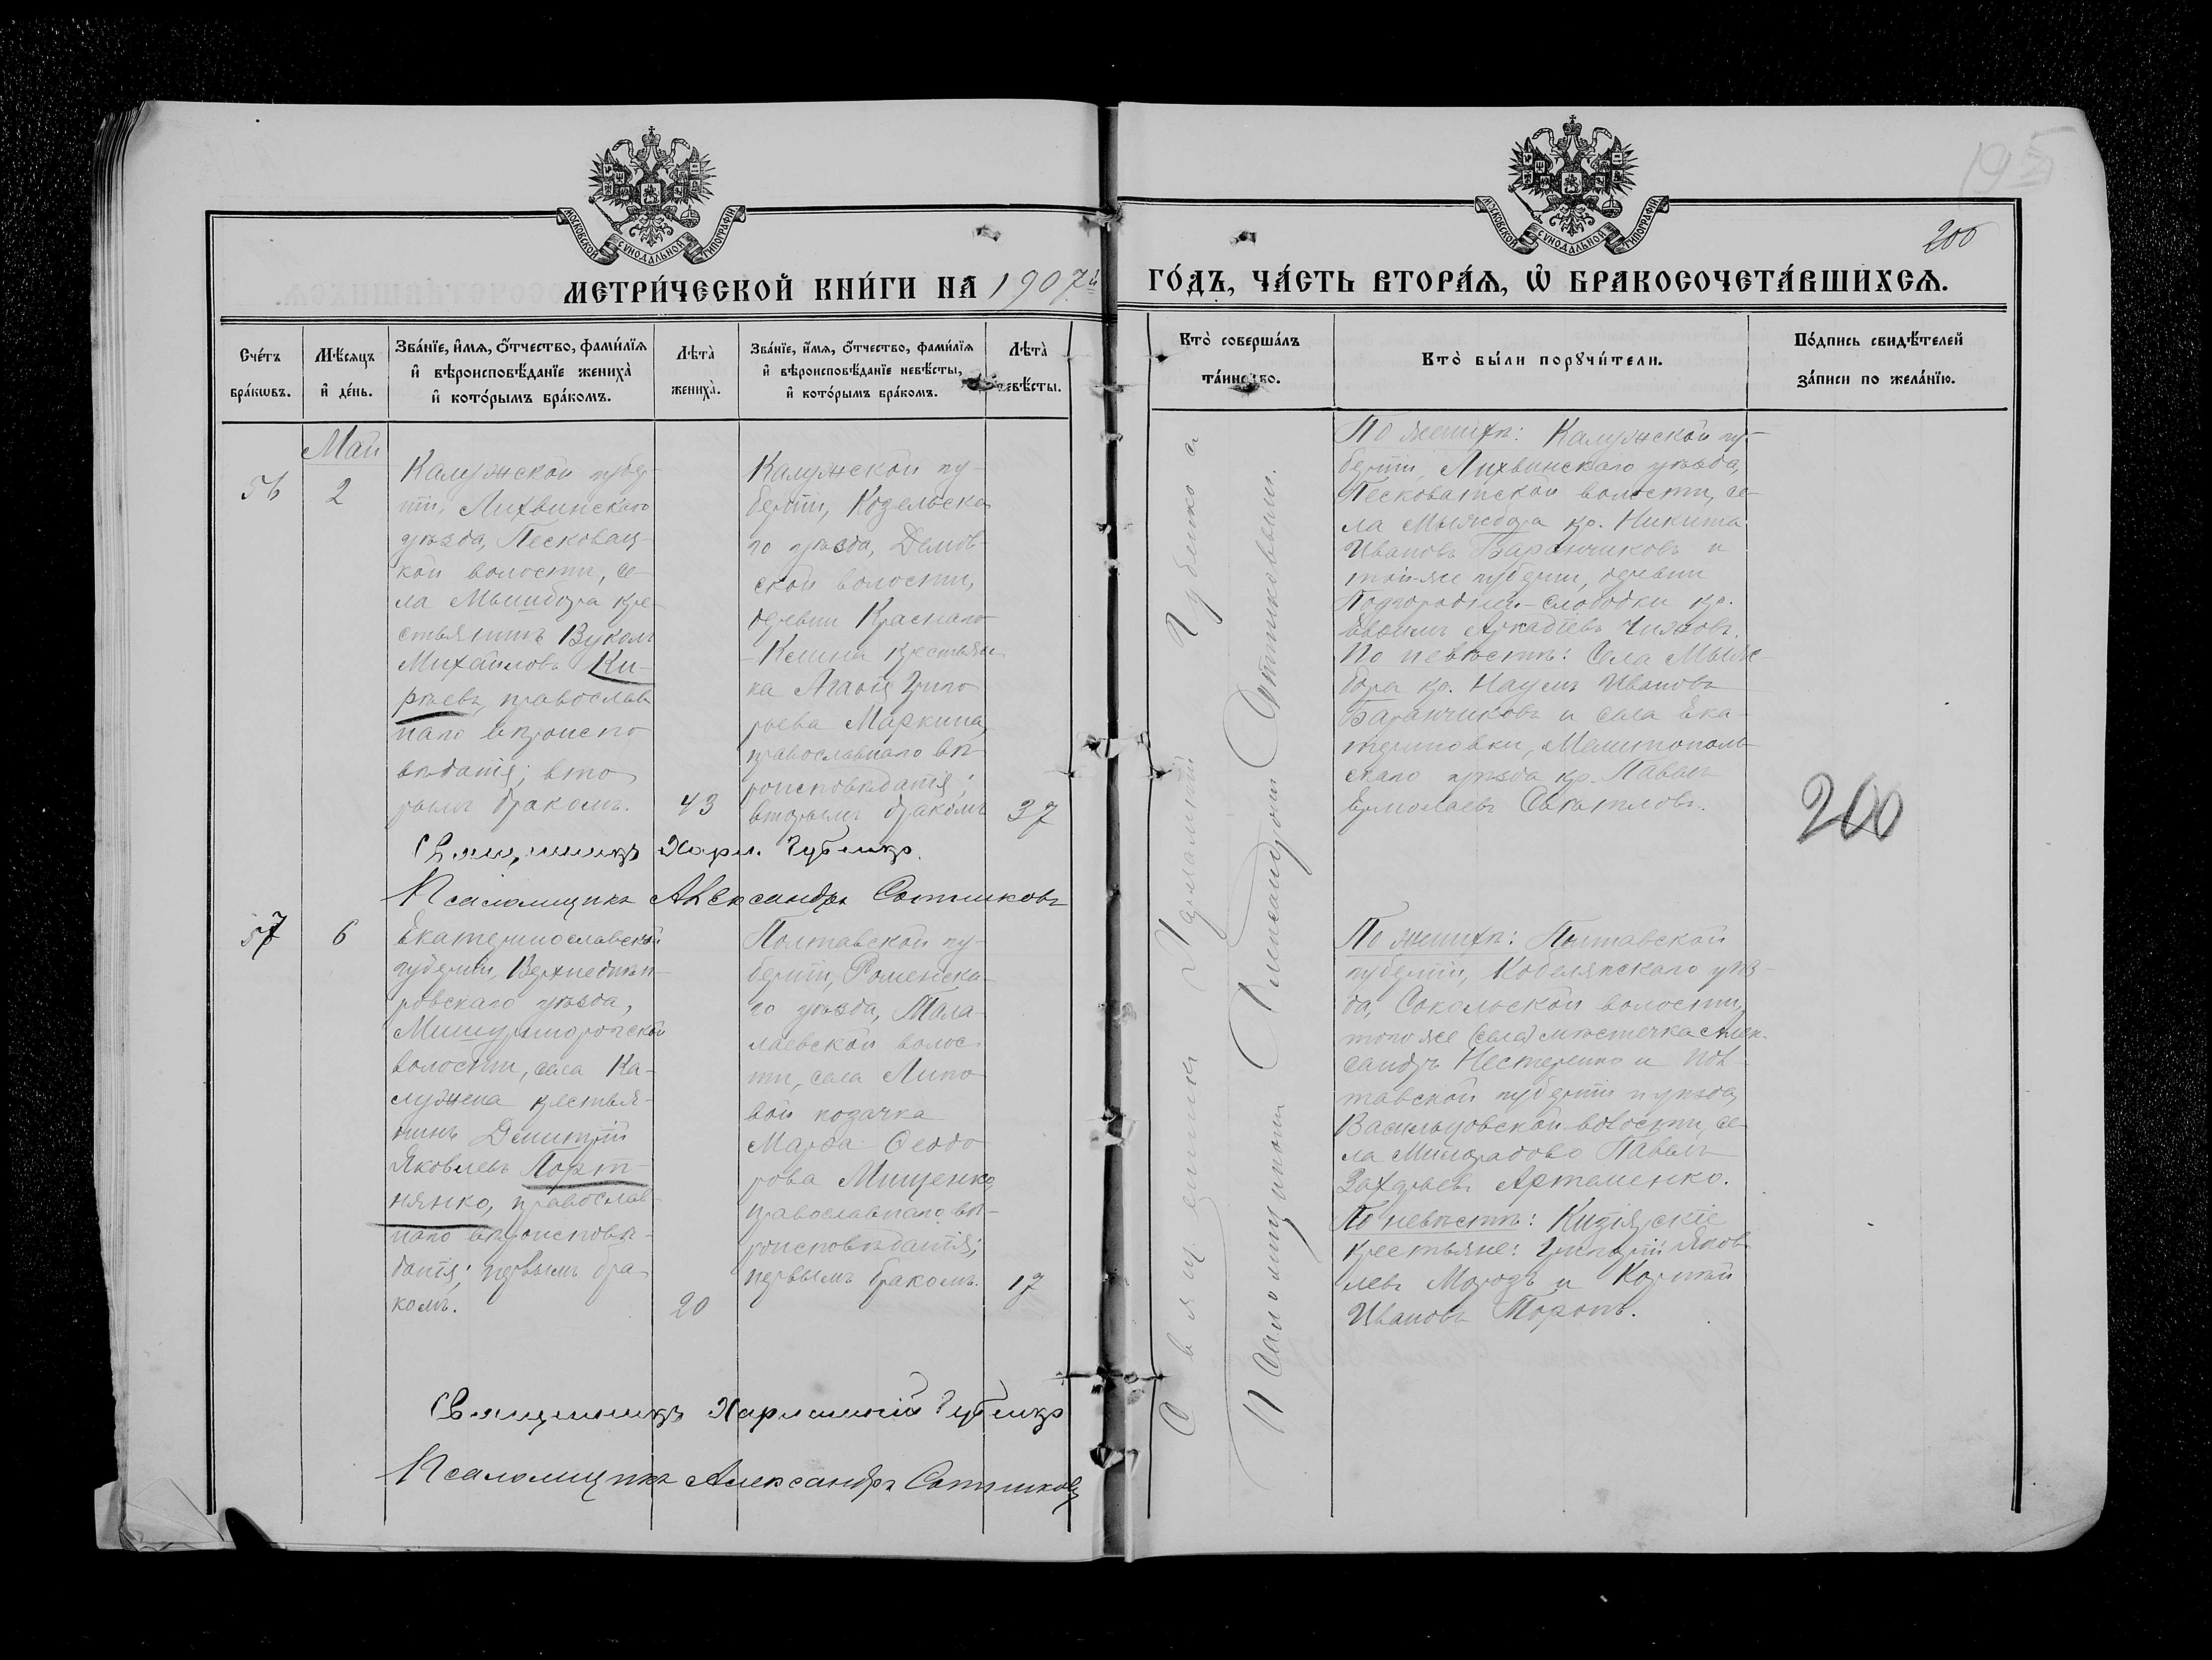 МОСКОВСКОЙ СѴНОДАЛЬНОЙ ТИПОГРАФІИ
МЕТРИ́ЧЕСКОЙ КНИ́ГИ НА 1907й
Сче́тъ бра́кѡвъ.
Мѣ́сяцъ и҆ де́нь.
Зва́нїе, и҆́мя, ѻ҆́тчество, фами́лїя и҆ вѣроисповѣ́данїе жениха̀ и҆ кото́рымъ бра́комъ.
Лѣ́та̀ жениха̀.
Зва́нїе, и҆́мя, ѻ҆́тчество, фами́лїя и҆ вѣроисповѣ́данїе невѣ́сты, и҆ кото́рымъ бра́комъ.
Лѣ́та̀ невѣ́сты.
Май
56
2
Калужской губер-
ніи, Лихвинскаго
уѣзда, Песковат-
кой волости, се-
ла Мышбора кре-
стьянинъ Вуколъ
Михайловъ Ки-
рѣевъ, православ
наго вѣроиспо
вѣданія; вто
рымъ бракомъ.
43
Калужской гу-
берніи, Козельска
го уѣзда,
ской волости,
деревни Краснаго
Клина крестьян
ка Агафія Григо
рьева Маркина,
православнаго вѣ
роисповѣданія;
вторымъ бракомъ
37
Священникъ Харл. Губенко.
Псаломщикъ Александръ Сотниковъ
57
6
Екатеринославской
губерніи, Верхнеднѣп-
ровскаго уѣзда,
Мишуринорогской
волости, села Ка-
лужена крестья-
нинъ Димитрій
Яковлевъ Порт-
нянко, православ-
наго вѣроисповѣ-
данія; первымъ бра-
комъ.
20
Полтавской гу-
берніи, Роменска-
го уѣзда, Тала-
лаевской волос
ти, села Липо
вой козачка
Марѳа Ѳеодо
рова Мищенко,
православнаго вѣ-
роисповѣданія;
первымъ бракомъ.
17
Священникъ Харлампій Губенко
Псаломщикъ Александръ Сотниковъ
195
200
МОСКОВСКОЙ СѴНОДАЛЬНОЙ ТИПОГРАФІИ
ГО́ДЪ, ЧА́СТЬ ВТОРА́Я, Ѽ БРАКОСОЧЕТА́ВШИХСЯ.
Кто̀ соверша́лъ та́инство.
Кто̀ бы́ли порꙋчи́тели.
По́дпись свидѣ́телей за́писи по жела́нїю.
Священникъ Харлампій Губенко с
Псаломщикомъ Александромъ Сотниковымъ.
По женихѣ: Калужской гу-
берніи, Лихвинскаго уѣзда,
Песковатской волости, се-
ла Мышбора кр. Никита
Ивановъ Баранчиковъ и
той-же губерніи, деревни
Подгородней-слободки кр.
Евѳимъ Аркадіевъ Чижовъ.
По невѣстѣ: Села Мыш-
бора кр. Наумъ Ивановъ
Баранчиковъ и села Ека-
териновки, Мелитополь
скаго уѣзда кр. Павелъ
Ермолаевъ
По женихѣ: Полтавской
губерніи, Кобелякскаго уѣз-
да, Сокольской волости,
того же (села) мѣстечка Алек-
сандръ Нестеренко и Пол-
тавской губерніи и уѣзда,
Васильцовской волости, се
ла Милорадово Павелъ
Захарьевъ Артеменко.
По невѣстѣ: Кизіярскіе
крестьяне: Григорій Яков
левъ Морозъ и Корнѣй
Ивановъ Торопъ.
200